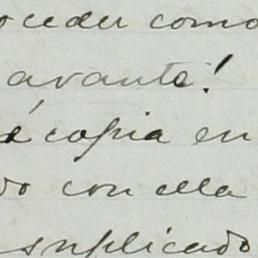 oceder como
avante!
é copia en
do con ella
suplicado